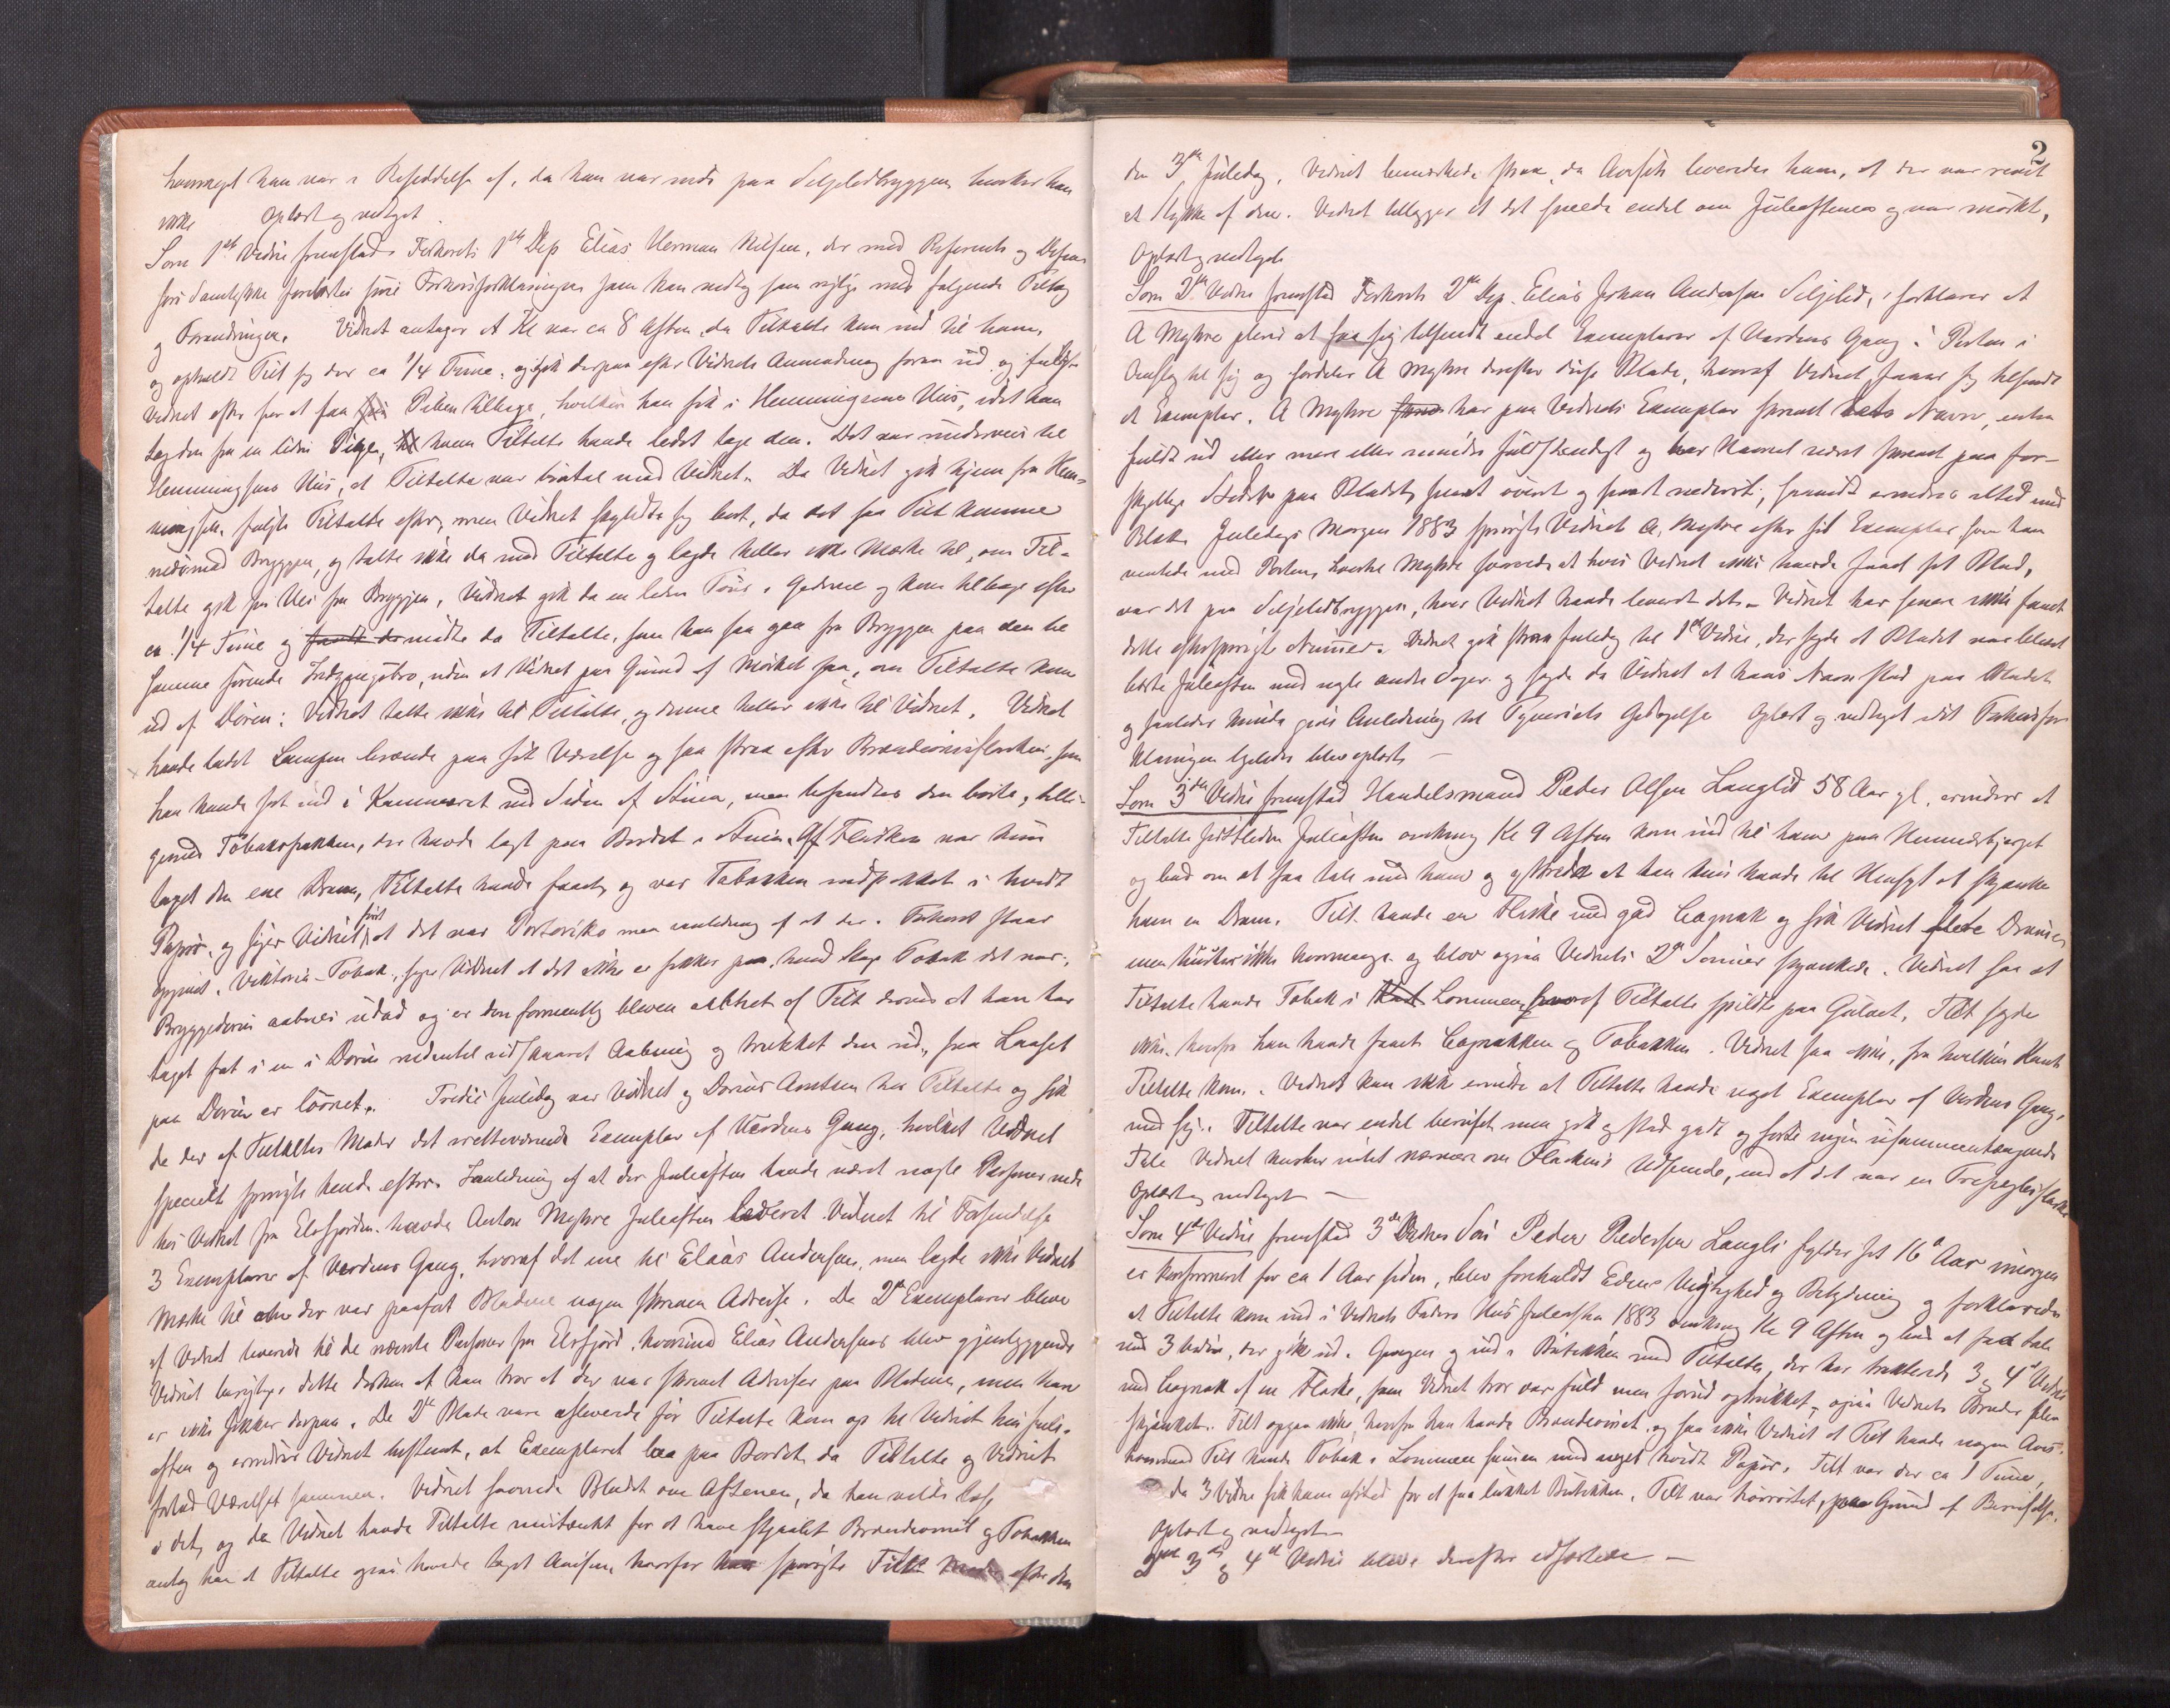 hvormeget han var i Besiddelse af, da han var inde paa Seljelidbryggen husker han
ikke Oplæst og vedtaget.
Som 1ste Vidne fremstod Forhørets 1ste Dep Elias Herman Nilsen, der med Referents og Defen-
sors Samtykke forelæstes sine Forhørsforklaringer som han vedtog som rigtige med følgende Tillæg
og Forandringer. Vidnet antager at Kl var ca 8 Aften, da Tiltalte kom ind til ham,
og opholdt Tilt sig der ca 1/4 Time, og gik derpaa efter Vidnets Anmodning foran ud og fulgte
Vidnet efter for at faa sin Piben tilbage, hvilken han fik i Henningsens Hus, idet han
tog den fra en liden Pige, hvem Tiltalte havde ladet tage den. Det var underveis til
Henningsens Hus, at Tiltalte var brutal mod Vidnet. Da Vidnet gik hjem fra Hen-
ningsen, fulgte Tiltalte efter, men Vidnet skyndte sig bort, da det saa Tilt komme
nedimod Bryggen, og talte ikke da med Tiltalte og lagde heller ikke Mærke til, om Til-
talte gik sin Vei fra Bryggen, Vidnet gik da en liden Tour i Gaderne og kom tilbage efter
ca. 1/4 Time og mødte da Tiltalte, som han saa gaa fra Bryggen paa den til
samme førende Indgangsbro, uden at Vidnet paa Grund af Mørket saa, om Tiltalte kom
ud af Døren: Vidnet talte ikke til Tiltalte, og denne heller ikke til Vidnet. Vidnet
havde ladet Lampen brænde paa sit Værelse og saa strax efter Brændevinsflasken, som
han havde sat ind i Kammeret ved Siden af Stuen, men befandtes den borte, tilli-
gemed Tobakspakken, der havde lagt paa Bordet i Stuen. Af Flasken var kun
taget den ene Dram, Tiltalte havde faaet, og var Tobakken indpakket i hvidt
Papir, og siger Vidnet først at det var Portoriko men i anledning af at der i Forhøret staar
opgivet Viktoria-Tobak, siger Vidnet at det ikke er sikker paa, hvad Slags Tobak det var.
Bryggedøren aabnes udad og er den formentlig bleven aabnet af Tilt derved at han har
taget fat i en i Døren nedentil udskaaret Aabning og trukket den ud, fra Laaset
paa Døren er løsnet. Tredie Juledag var Vidnet og Dorius Arntsen hos Tiltalte og fik
da der af Tiltaltes Moder det vedkommende Exemplar af Verdens Gang, hvilket Vidnet
specielt spurgte hende efter. I anledning af at der Juleaften havde været nogle Personer inde
hos Vidnet fra Elsfjorden havde Anton Myhre Juleaften leveret Vidnet til Forsendelse
3 Exemplarer af Verdens Gang, hvoraf det ene til Elias Andersen, men lagde ikke Vidnet
Mærke til om der var paaført Bladene nogen skreven Adresse. De 2de Exemplarer bleve
af Vidnet leverede til de nævnte Personer fra Elsfjord, hvorimod Elias Andersens blev gjenliggende
Vidnet berigtiger dette derhen at han tror at der var skrevet Adresser paa Bladene, men han
er ikke sikker derpaa. De 2de Blade vare afleverede før Tiltalte kom op til Vidnet hin Jule-
aften og erindrer Vidnet bestemt, at Exemplaret laa paa Bordet da Tiltalte og Vidnet
forlod Værelset sammen. Vidnet savnede Bladet om Aftenen, da han vilde læse
i det, og da Vidnet havde Tiltalte mistænkt for at have stjaalet Brændevinet og Tobakken
antog han at Tiltalte ogsaa havde taget Avisen, hvorfor han spurgte Tilts Moder efter den
2
den 3die Juledag. Vidnet bemærkede strax, da Avisen leveredes ham, at der var revet
et Stykke af den. Vidnet tillægger at det sneede endel om Juleaftenen og var mørkt.
Oplæst og vedtaget
Som 2det Vidne fremstod Forhørets 2den Dep. Elias Johan Andersen Seljelid, forklarer at
A Myhre pleier at faa sig tilsendt endel Exemplarer af Verdens Gang i Posten i
Omslag til sig og fordeler A Myhre derefter disse Blade, hvoraf Vidnet faaer sig tilsendt
et Exemplar. A Myhre har paa Vidnets Exemplar skrevet dets Navn, enten
fuldt ud eller mere eller mindre fuldstændigt og har Navnet været skrevet paa for-
skjellige Steder paa Bladet, snart øverst og snart nederst, saavidt erindres altid med
Blæk. Juledags Morgen 1883 spurgte Vidnet A. Myhre efter sit Exemplar, som han
ventede med Posten, hvortil Myhre svarede at hvis Vidnet ikke havde faaet sit Blad,
var det paa Seljelidbryggen, hvor Vidnet havde leveret det. Vidnet har senere ikke faaet
dette efterspurgte Numer. Vidnet gik strax Juledag til 1ste Vidne, der sagde at Bladet var blevet
borte Juleaften med nogle andre Sager og sagde da Vidnet at hans Navn stod paa Bladet
og saaledes kunde give Anledning til Tyveriets Opdagelse Oplæst og vedtaget idet Forhørsfor-
klaringen ligeledes blev oplæst —
Som 3die Vidne fremstod Handelsmand Peder Olsen Langlid 58 Aar gl, erindrer at
Tiltalte sidstleden Juleaften omkring Kl 9 Aften kom ind til ham paa Hemnesbjerget
og bad om at faa tale med ham og yttrede at han kun havde til Hensigt at skjænke
ham en Dram. Tilt. havde en Flaske med god Cognak og fik Vidnet flere Dramer
men husker ikke hvormange og blev ogsaa Vidnets 2de Sønner skjænkede. Vidnet saa at
Tiltalte havde Tobak i Lommen, hvoraf Tiltalte spildte paa Gulvet, Tilt sagde
ikke, hvorfra han havde faaet Cognakken og Tobakken. Vidnet saa ikke, fra hvilken Kant
Tiltalte kom. Vidnet kan ikke erindre at Tiltalte havde noget Exemplar af Verdens Gang
med sig. Tiltalte var endel beruset men gik og stod godt og førte ingen usammenhængende
Tale Vidnet husker intet nærmere om Flaskens Udseende, end at det var en Trepægleflaske
Oplæst og vedtaget —
Som 4de Vidne fremstod 3die Vidnes Søn Peder Pedersen Langli fylder sit 16de Aar imorgen
er konfirmeret for ca 1 Aar siden, blev foreholdt Edens Vigtighed og Betydning og forklarede
at Tiltalte kom ind i Vidnets Faders Hus Juleaften 1883 omkring Kl 9 Aften og bad at faa tale
med 3 Vidne, der gik ud i Gangen og ind i Butikken med Tiltalte, der har trakterede 3 og 4de Vidne
med Cognak af en Flaske, som Vidnet tror var fuld men forud optrukket, ogsaa Vidnets Broder blev
skjænket. Tilt opgav ikke, hvorfra han havde Brændevinet, og saa ikke Vidnet at Tilt havde nogen Avis,
hvorimod Tilt havde Tobak i Lommen sammen med noget hvidt Papir. Tilt var der ca 1 Time,
da 3 Vidne fik ham afsted for at faa lukket Butikken. Tilt var paa Grund af Beruselse.
Oplæst og vedtaget
3die og 4de Vidne bleve derefter edfæstede —